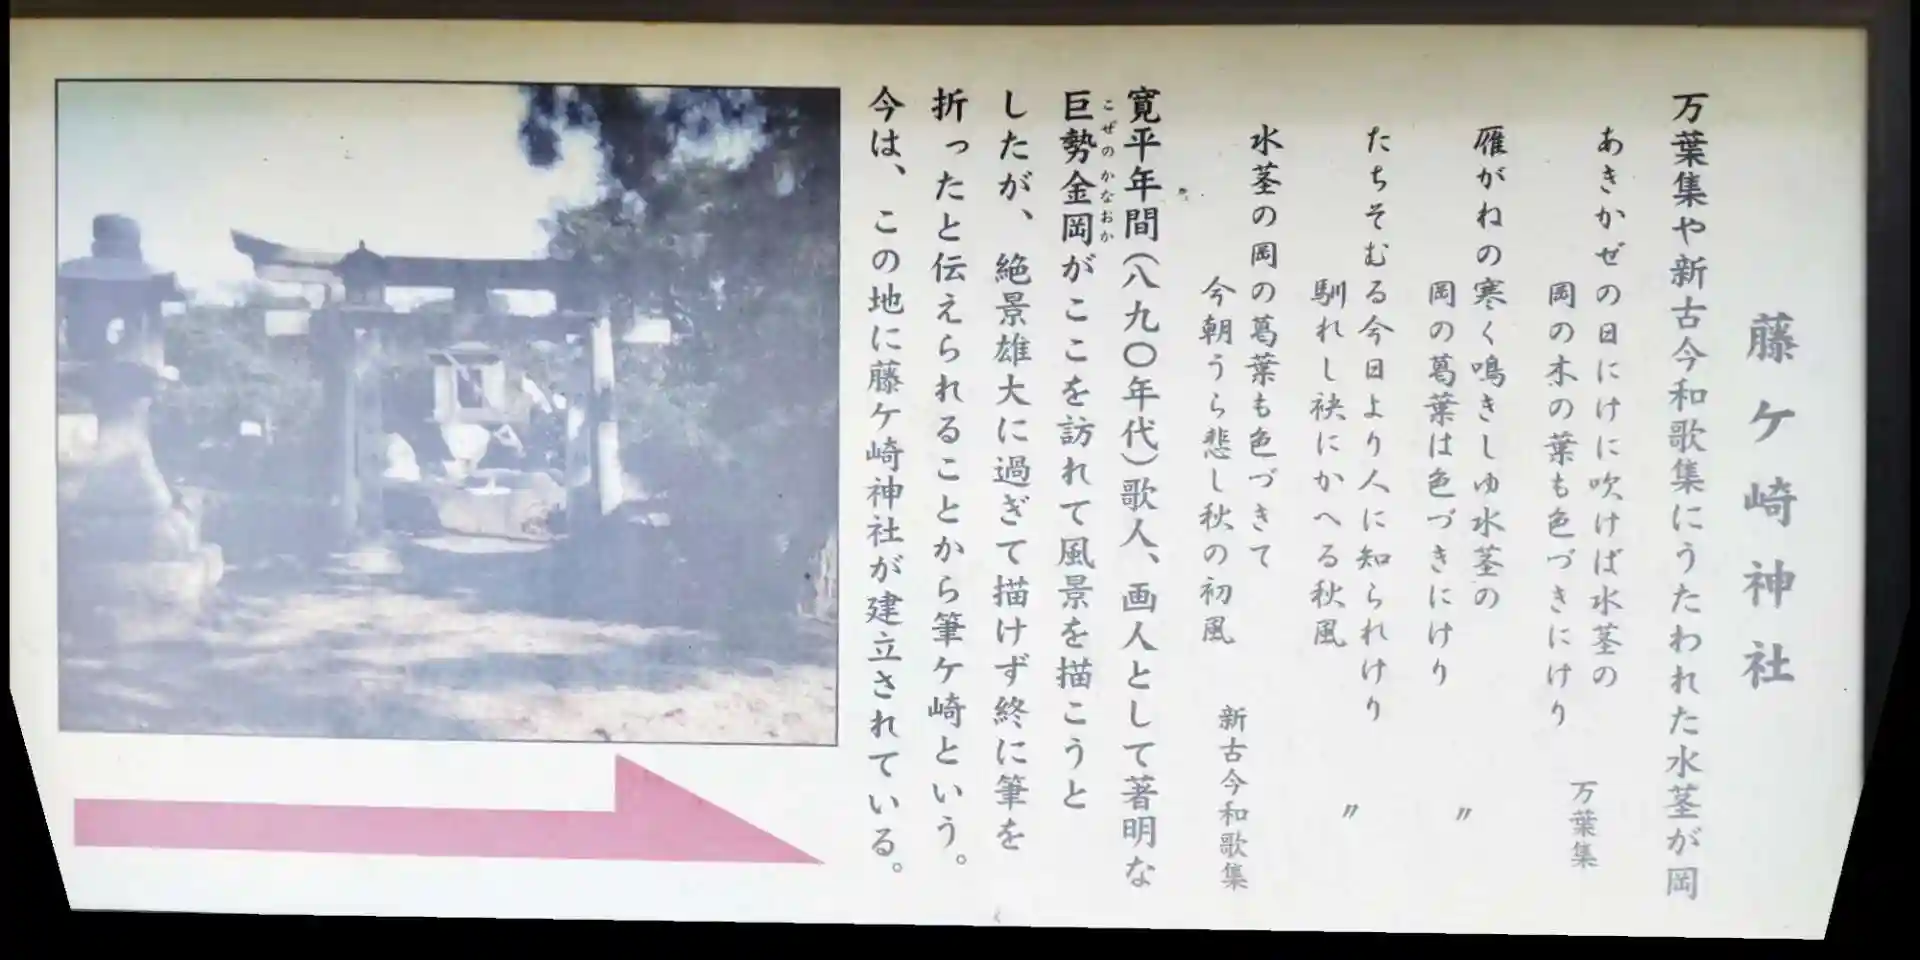 藤ケ崎神社
万葉集や新古今和歌集にうたわれた水茎が岡
あきかぜの日にけに吹けば水茎の
岡の木の葉も色づきにけり
万葉集
雁がねの寒く鳴きしゆ水茎の
岡の葛葉は色づきにけり
〃
たちそむる今日より人に知られけり
馴れし袂にかへる秋風
〃
水茎の岡の葛葉も色づきて
今朝うら悲し秋の初風
新古今和歌集
寛平年間(八九〇年代)歌人、画人として著明な
こぜのかなおか
巨勢金岡がここを訪れて風景を描こうと
したが、絶景雄大に過ぎて描けず終に筆を
折ったと伝えられることから筆ケ崎という。
今は、この地に藤ケ崎神社が建立されている。